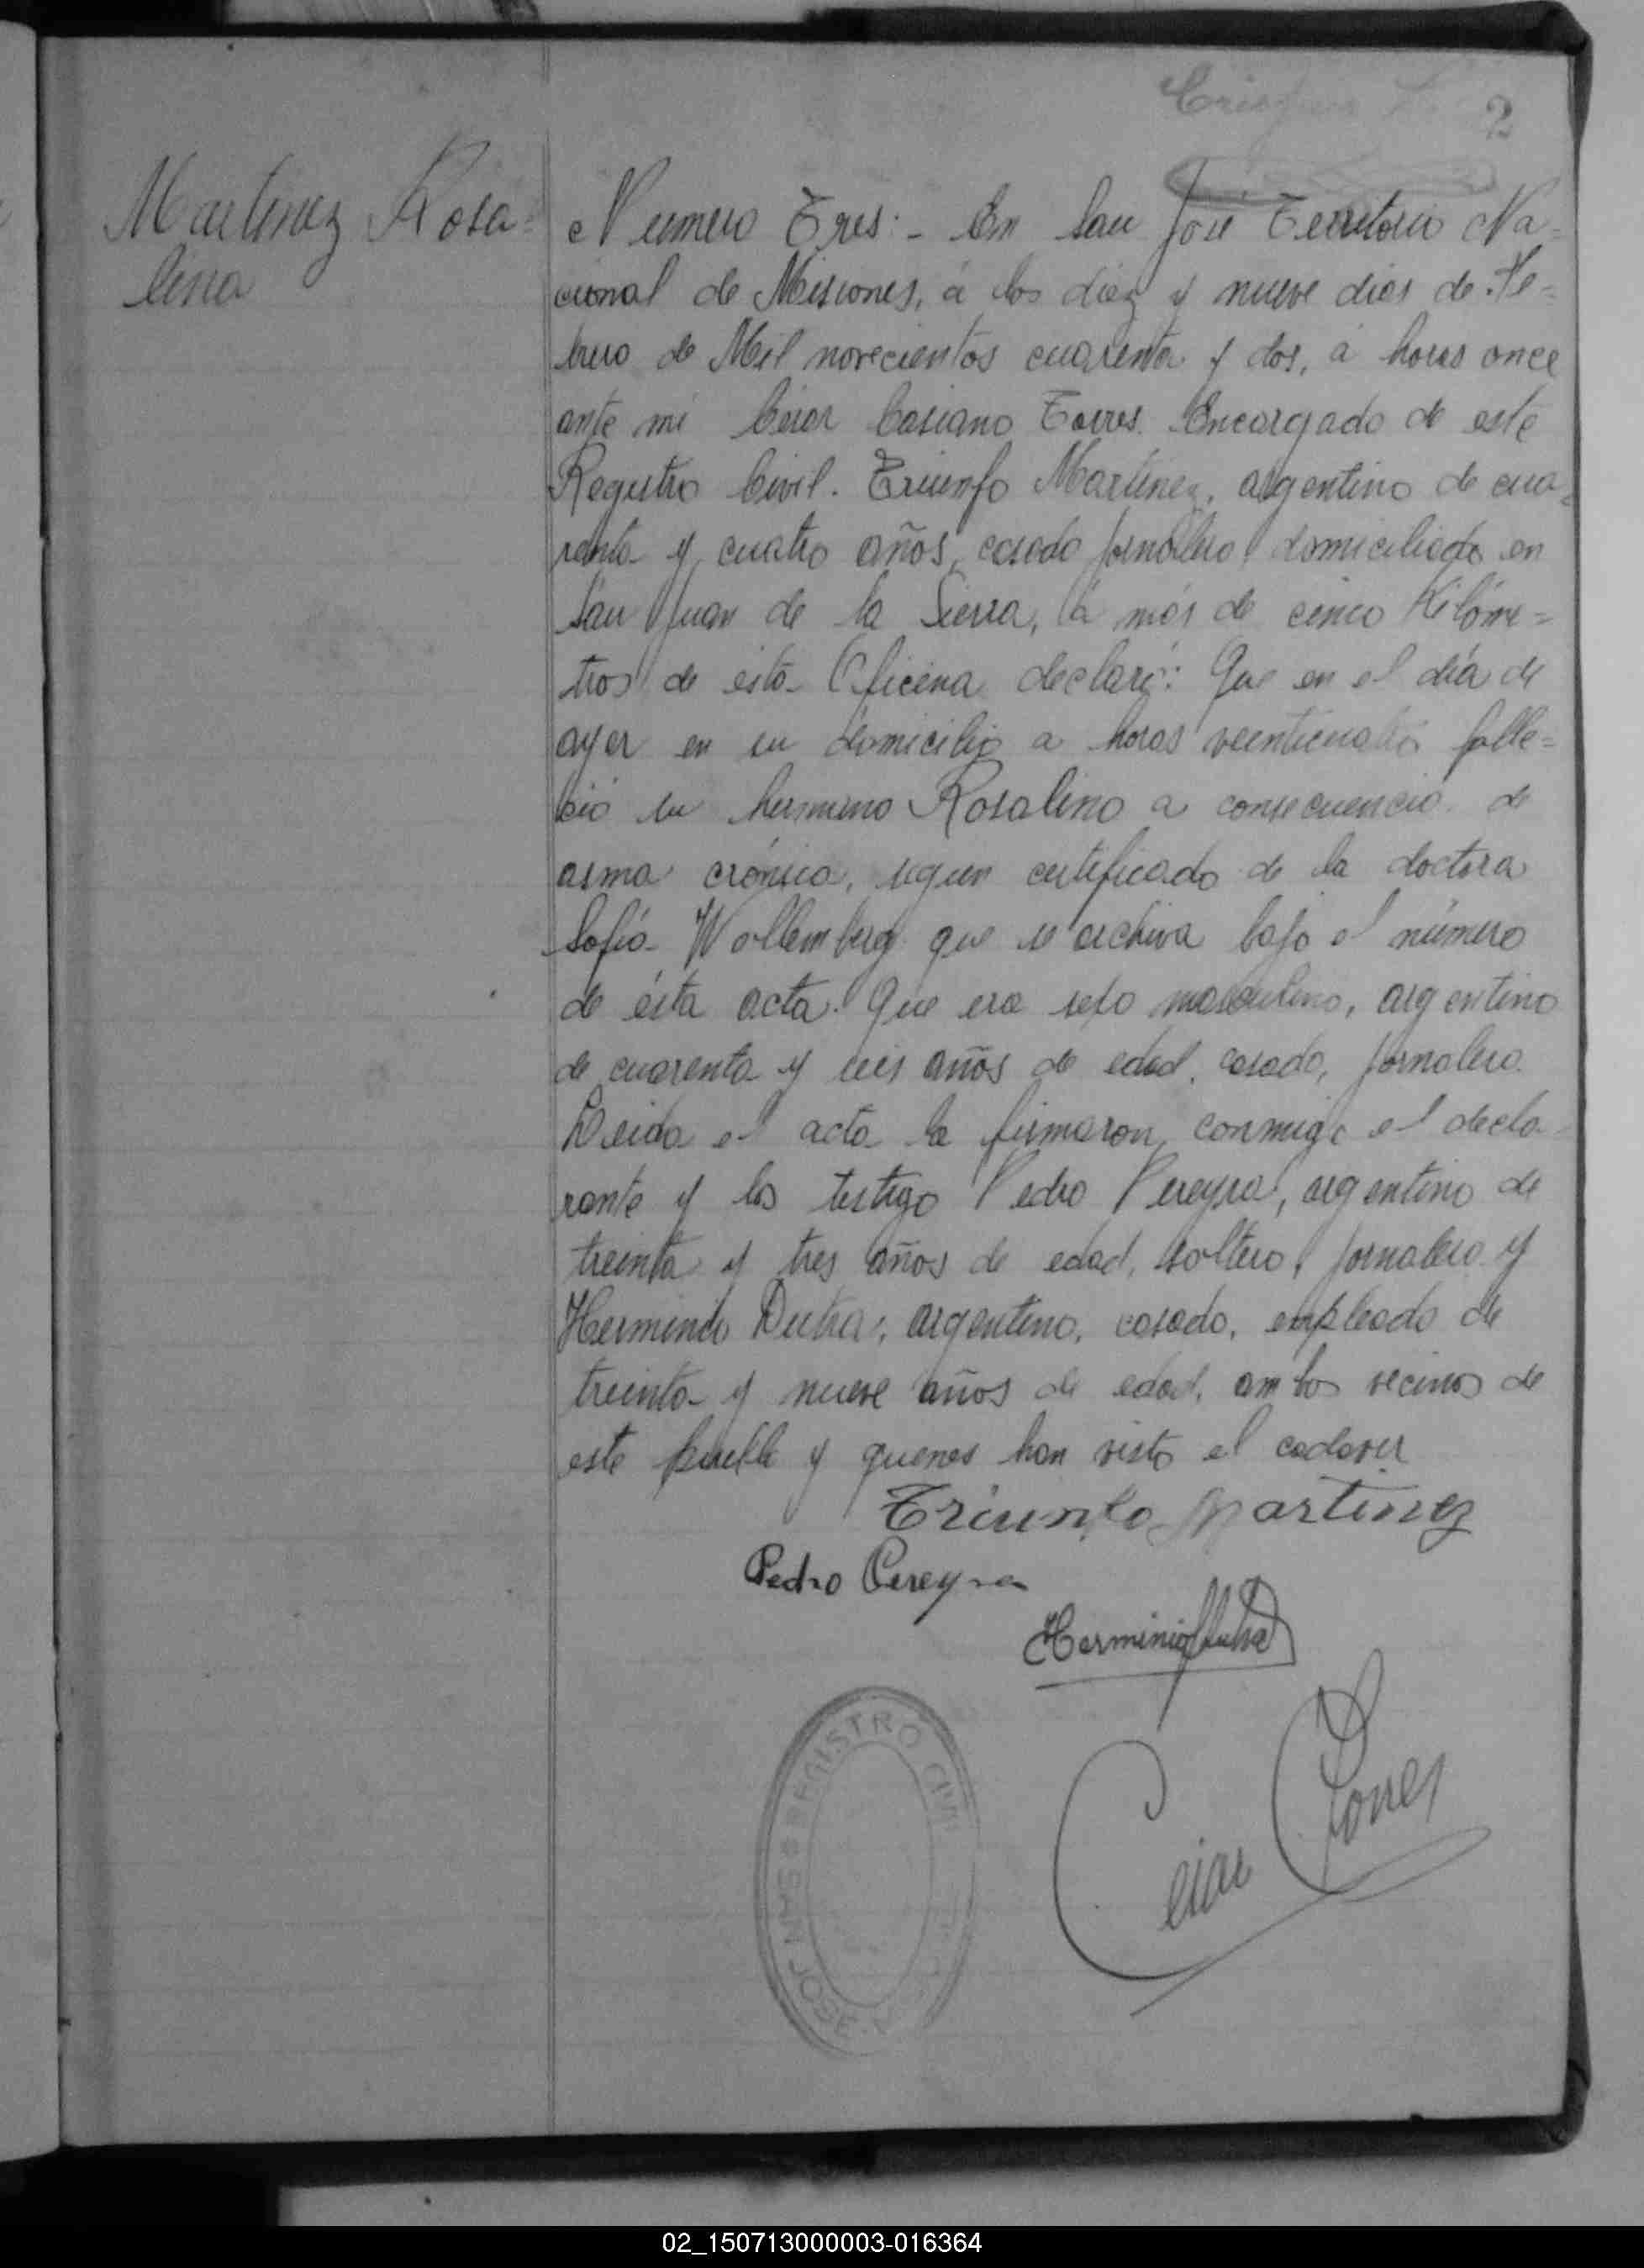 2
Martinez Rosa=
lina
Numero Tres:- En San José Territorio Na=
cional de Misiones, á los diez y nueve dias de Fe=
brero de Mil novecientos cuarenta y dos, á horas once
ante mi César Casiano Torres. Encargado de este
Registro Civil. Triunfo Martinez, argentino de cua=
renta y cuatro años, casado jornalero domiciliado en
San Juan de la Sierra, á más de cinco Kilóme=
tros de esta Oficina declaró: Que en el día de
ayer en su domicilio a horas veinticuatro falle=
ció su hermano Rosalino a consecuencia de
asma crónica, segun certificado de la doctora
Sofía Wollemberg que se archiva bajo el número
de ésta acta. Que era sexo masculino, argentino
de cuarenta y seis años de edad, casado, jornalero.
Leida el acta la firmaron conmigo el decla=
rante y los testigo Pedro Pereyra, argentino de
treinta y tres años de edad, soltero, jornalero y
Herminio Dutra, argentino, casado, empleado de
treinta y nueve años de edad, ambos vecinos de
este pueblo y quienes han visto el cadaver
Triunfo Martinez
Pedro Pereyra
Herminio Dutra
Cesar Torres
REGISTRO CIVIL
SAN JOSE
02_150713000003-016364